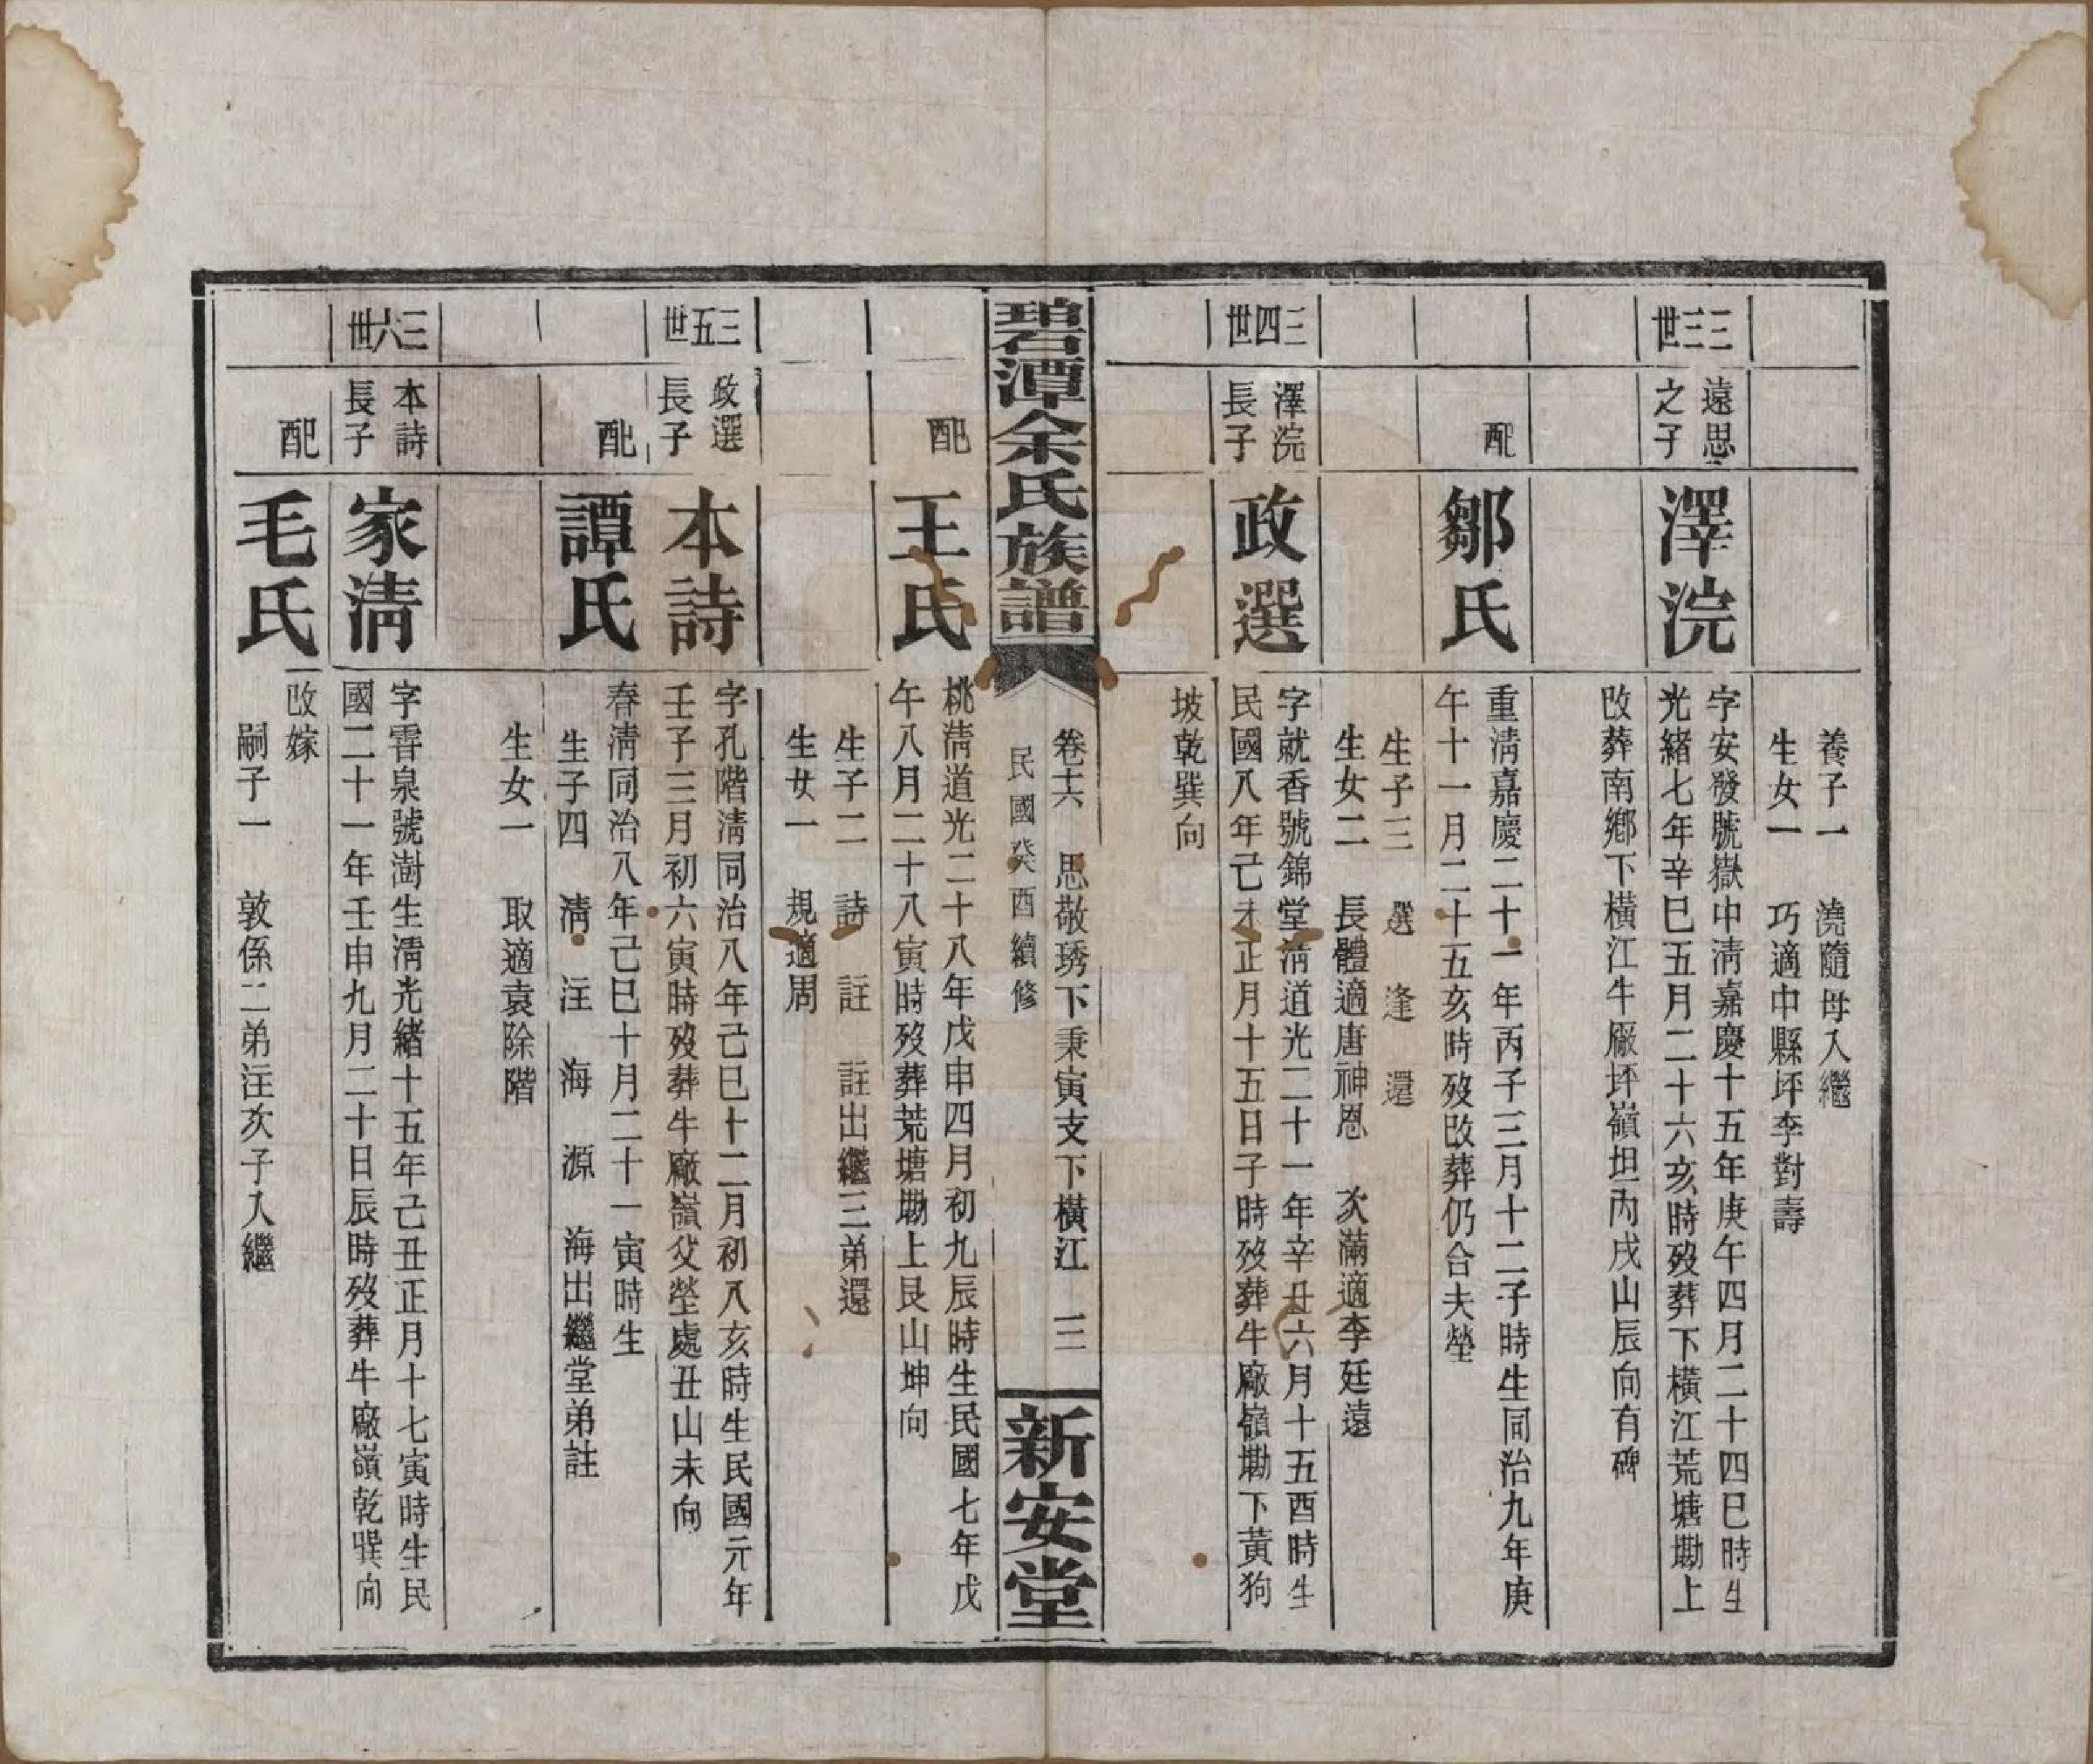 養子一　澆隨母入繼
生女一　巧適中縣坪李對壽
三三世
遠思之子
澤浣
字安發號嶽中淸嘉慶十五年庚午四月二十四巳時生
光緒七年辛巳五月二十六亥時歿葬下橫江荒塘墈上
改葬南鄉下橫江牛廠坪嶺坦丙戌山辰向有碑
配
鄒氏
重淸嘉慶二十一年丙子三月十二子時生同治九年庚
午十一月二十五亥時歿改葬仍合夫塋
生子三　選　逢　還
生女二　長體適唐神恩　次滿適李廷遠
三四世
澤浣長子
政選
字就香號錦堂淸道光二十一年辛丑六月十五酉時生
民國八年己未正月十五日子時歿葬牛廠嶺墈下黃狗
坡乾巽向
碧潭余氏族譜
卷十六　思敬琇下秉寅支下橫江　三
民國癸酉續修
新安堂
配
王氏
桃淸道光二十八年戊申四月初九辰時生民國七年戊
午八月二十八寅時歿葬荒塘墈上艮山坤向
生子二　詩　註　註出繼三弟還
生女一　規適周
三五世
政選長子
本詩
字孔階淸同治八年己巳十二月初八亥時生民國元年
壬子三月初六寅時歿葬牛廠嶺父塋處丑山未向
配
譚氏
春淸同治八年己巳十月二十一寅時生
生子四　淸　注　海　源　海出繼堂弟註
生女一　取適袁除階
三六世
本詩長子
家淸
字雲泉號澍生淸光緒十五年己丑正月十七寅時生民
國二十一年壬申九月二十日辰時歿葬牛廠嶺乾巽向
配
毛氏
改嫁
嗣子一　敦係二弟注次子入繼